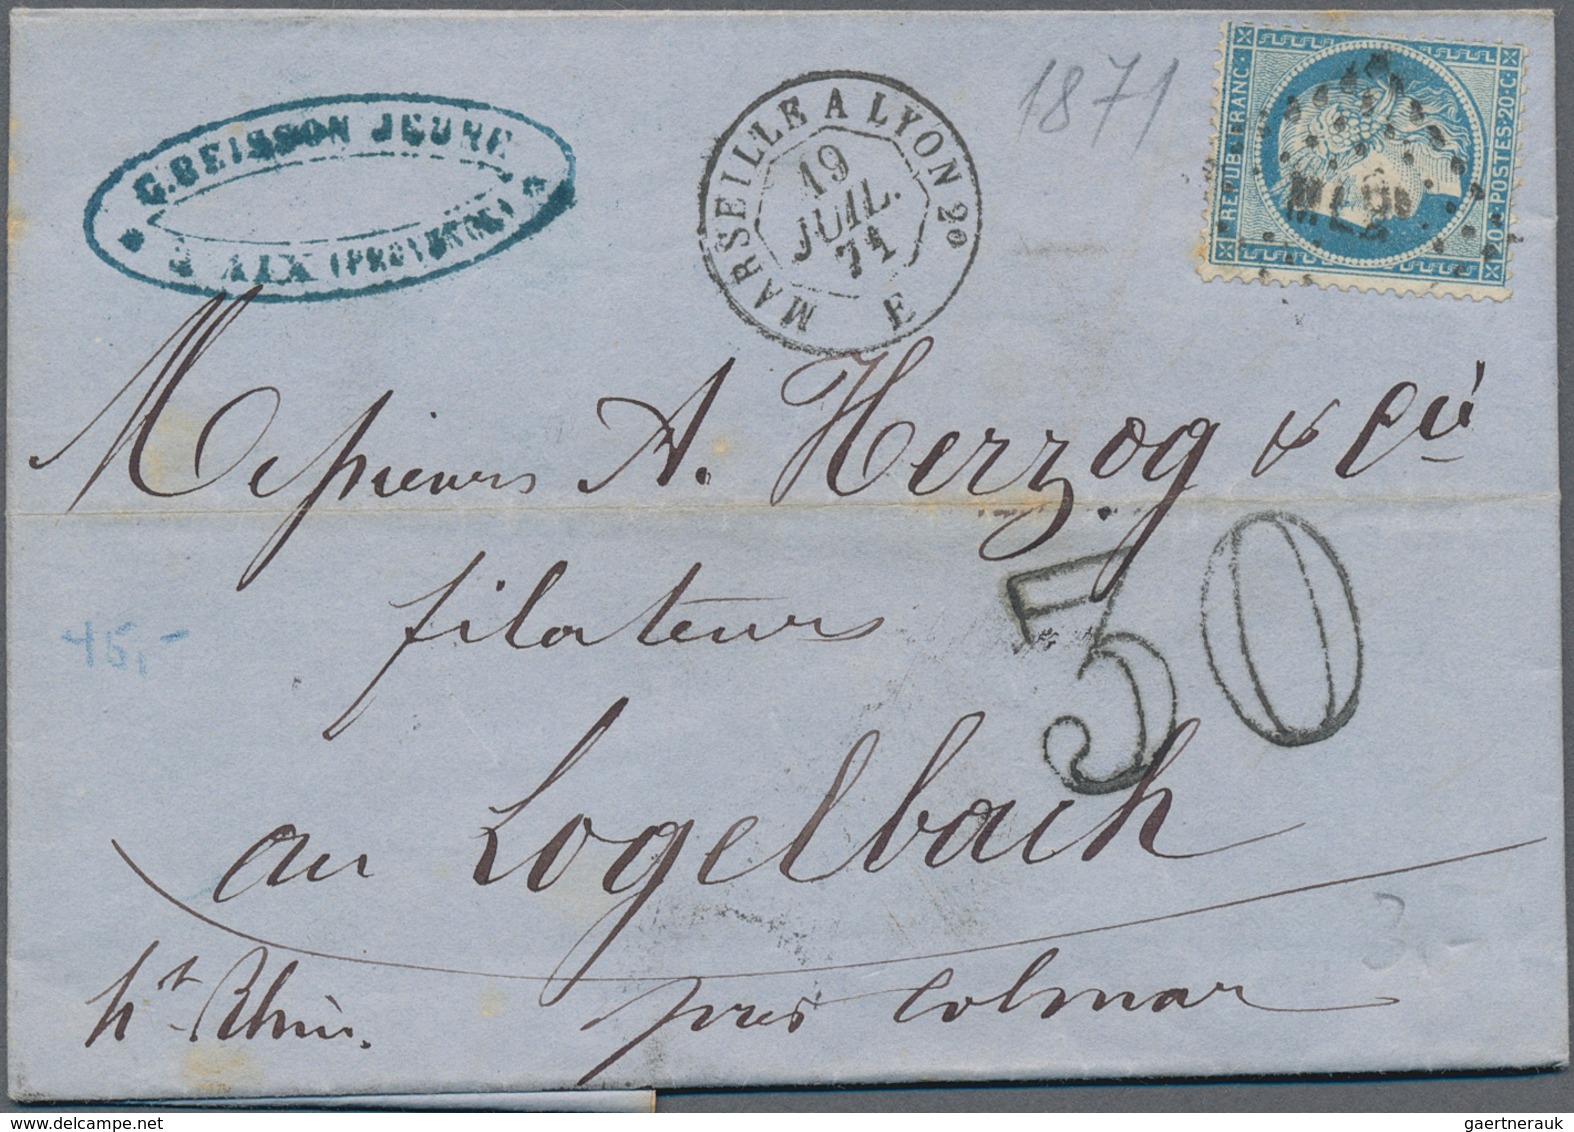 C. BEISSON JEUNE
À AIX (PROVENCE)
MARSEILLE A LYON 2°
19
JUIL.
71
E
1871
REPUB·FRANC·
·POSTES·20·C·
ML2°
Messieurs A. Herzog & Cie
filateurs
50
45,-
au Logelbach
3,-
ht Rhin. près Colmar
gaertnerauk